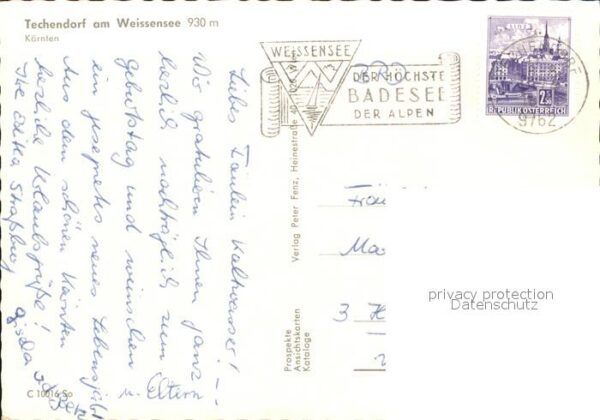 Techendorf am Weissensee 930 m
Kärnten
WEISSENSEE
DER HÖCHSTE
BADESEE
DER ALPEN
2.50
REPUBLIK ÖSTERREICH
9762
Liebes Fräulein Kaltwasser! - -
Wir gratulieren Ihnen ganz
herzlich nachträglich zum
Geburtstag und wünschen
ein gesegnetes neues Lebensjahr
Aus dem schönen Kärnten
herzliche Urlaubsgrüße!
Ihre Edika Straßburg
Gisela
Eltern
Verlag Peter Fenz, Heinestraße
Prospekte
Ansichtskarten
Kataloge
Fräu
Ma
3 H
C 10016 So
privacy protection
Datenschutz